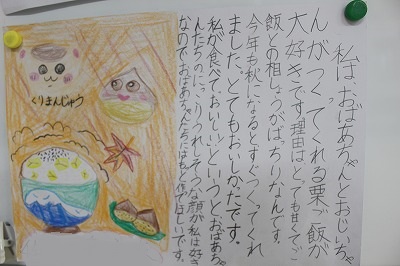 私は、おばあちゃんとおじいちゃ
んがつくってくれる栗ご飯が
大好きです。理由は、とても甘くてご
飯との相しょうがばっちりなんです。
今年も秋になるとすぐつくってくれ
ました。とてもおいしかったです。
私が食べて、おいしいというと、おばあちゃ
んたちのにっこりうれしそうな顔が私は好き
なので、おばあちゃんたちにはもっと作ってほしいです。
くりまんじゅう